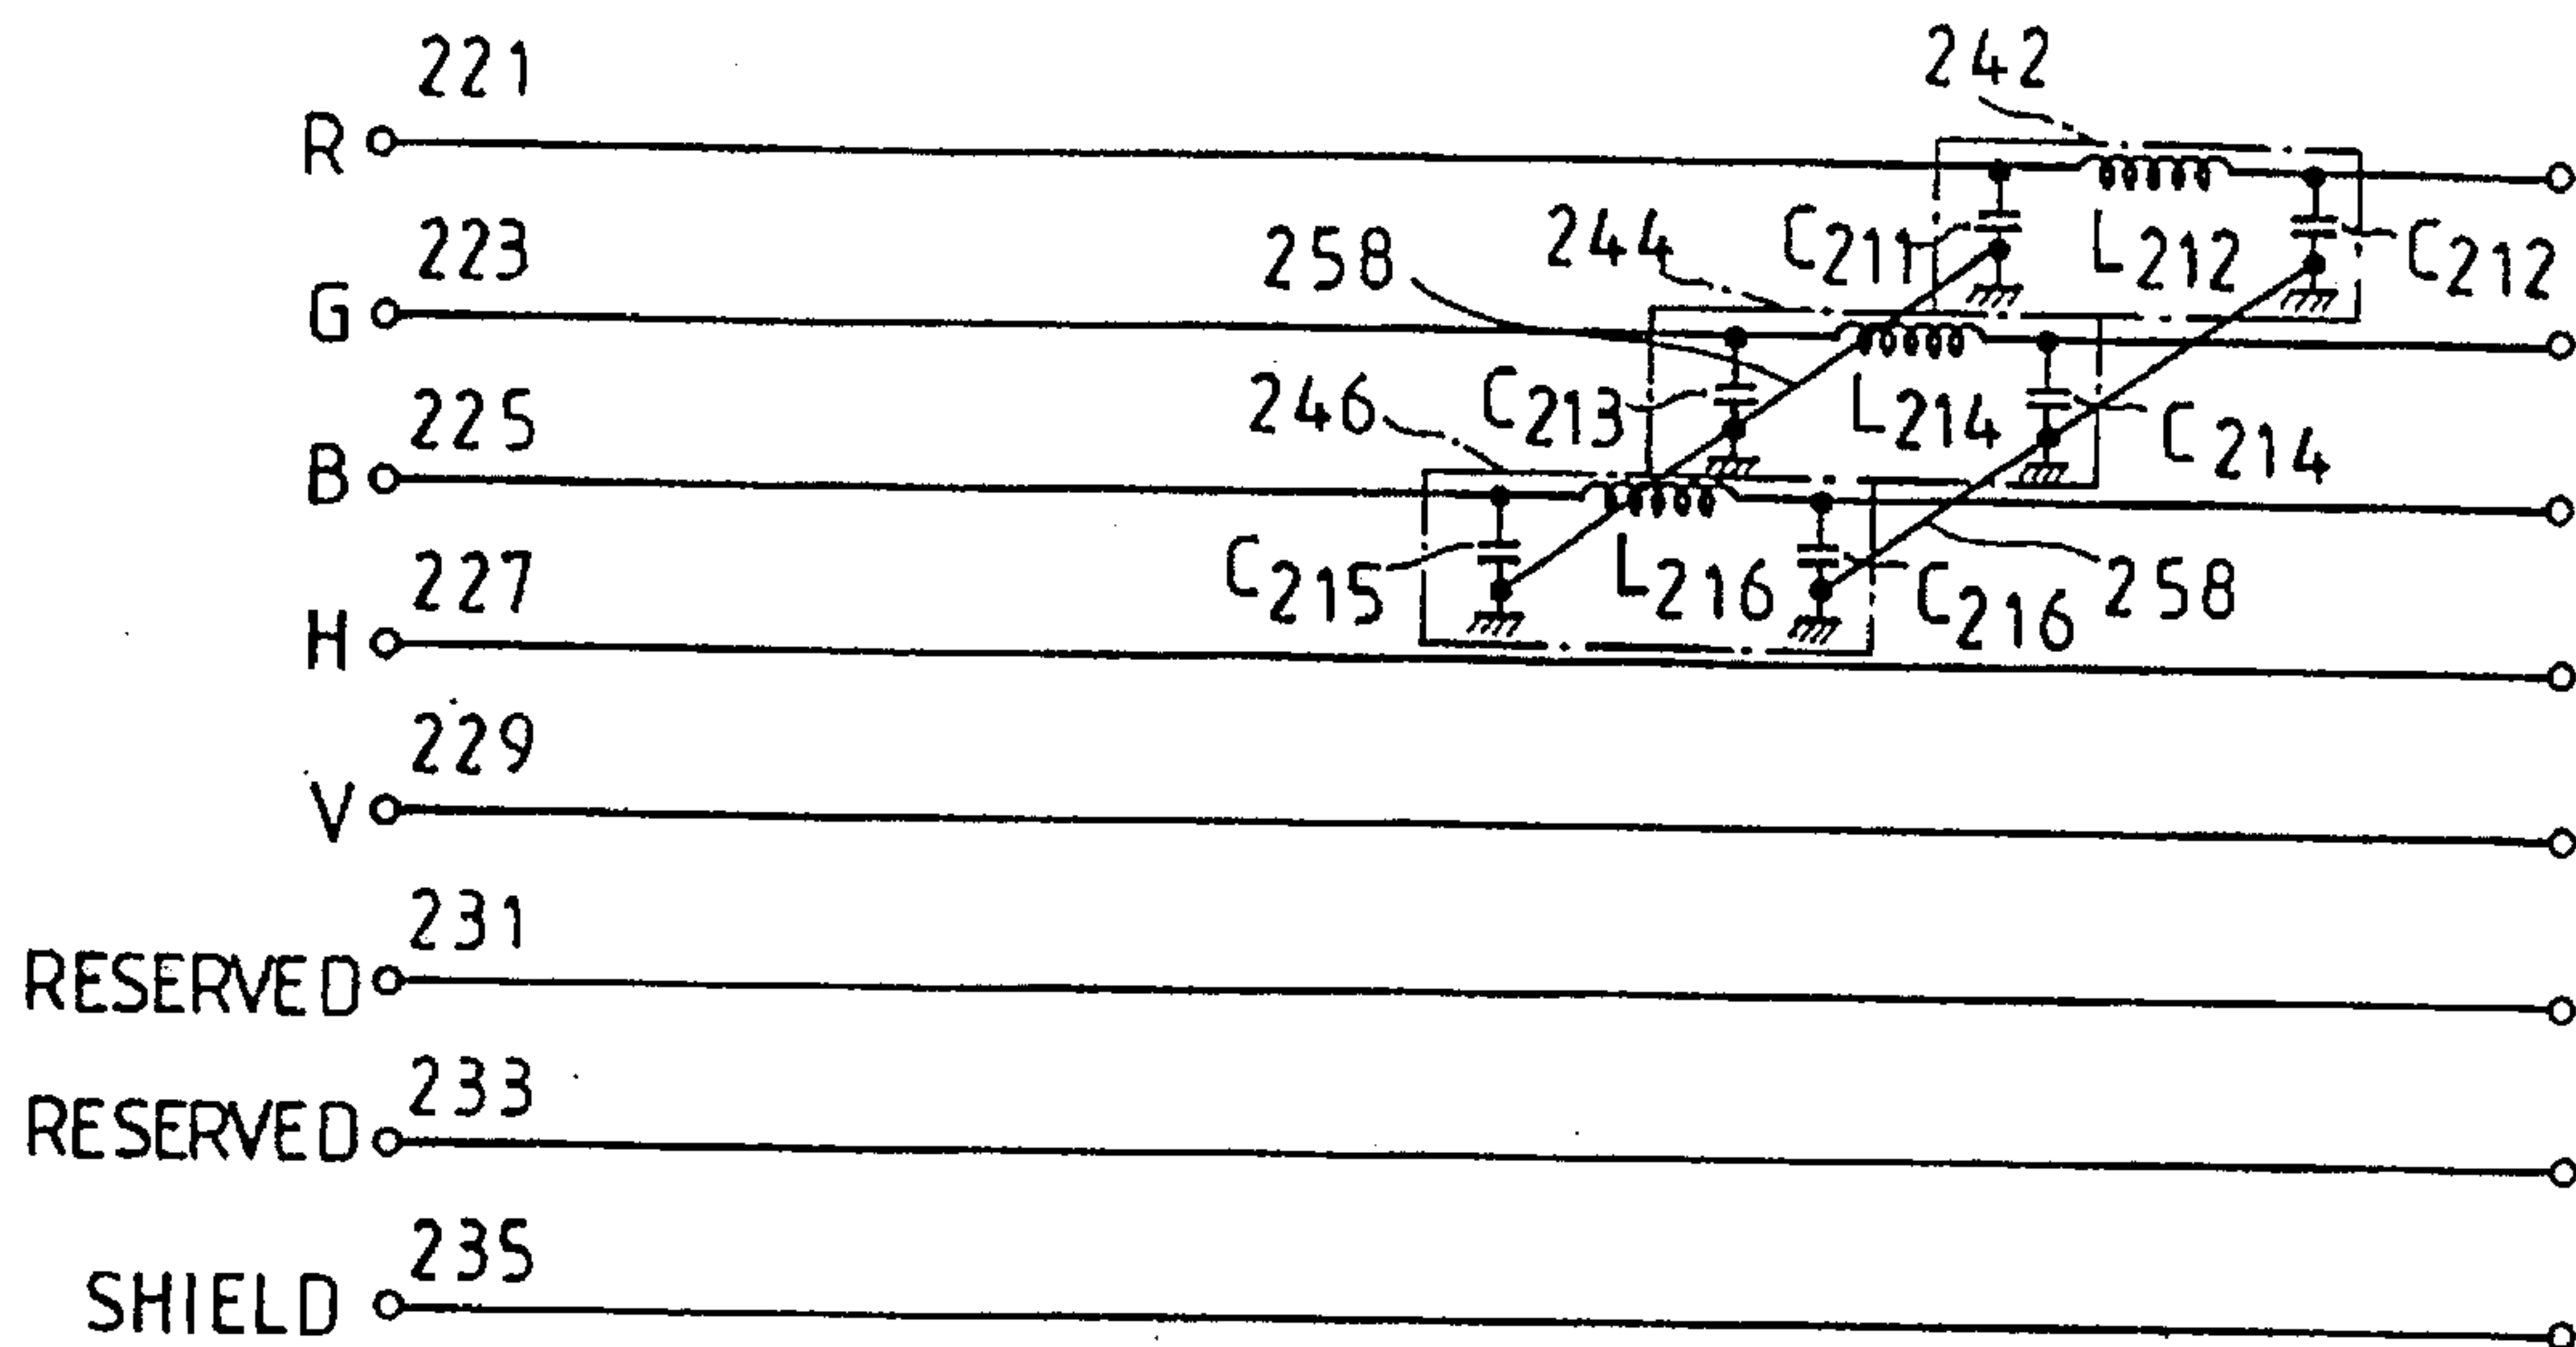 221
242
R
223
258
244
C211
L212
C212
G
225
246
C213
L214
C214
B
227
C215
L216
C216
258
H
229
V
231
RESERVED
233
RESERVED
235
SHIELD